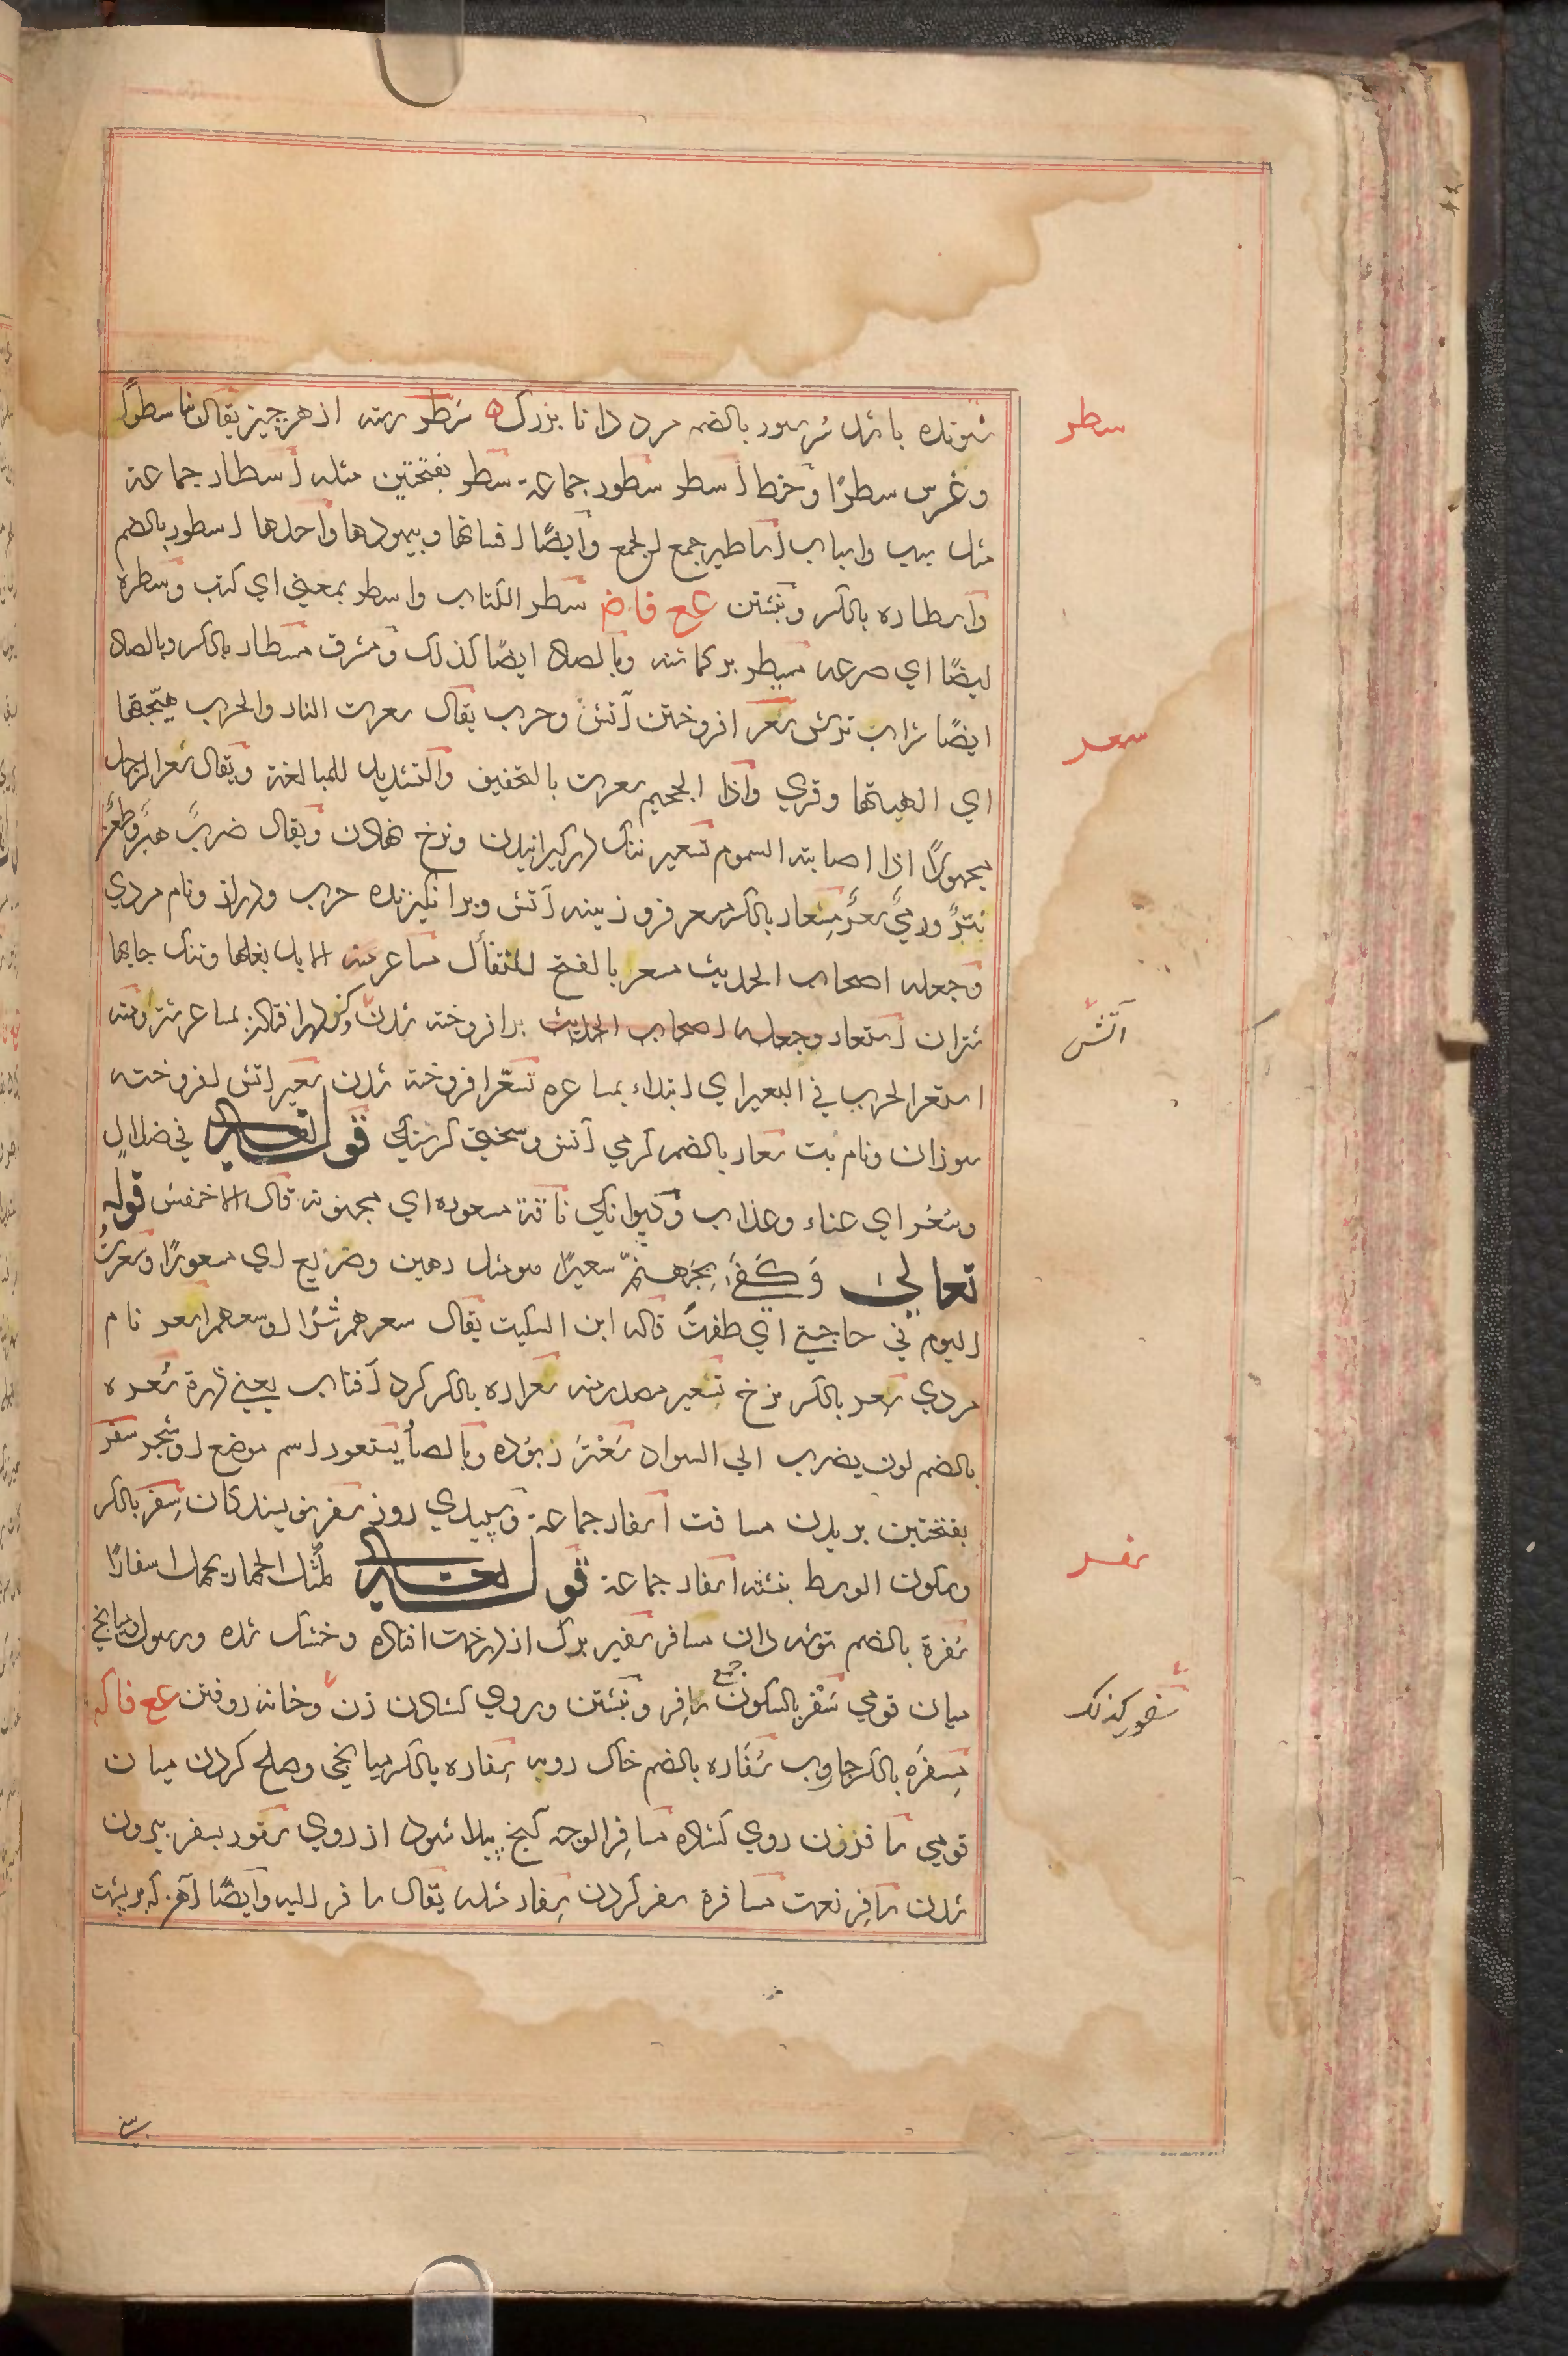 شونده باشد سرسور بالضم مرد دانا بزرك ه سَطر رسته از هر چيز يقال بنا سطرًا
وغرس سطرًا وخط اسطر سطور جماعة سطر بفتحتين مثله اسطار جماعة
مثل سبب واسباب اساطير جمع الجمع وايضًا افسانها وبيهودها واحدها اسطور بالضم
واسطاره بالكسر ونبشتن ع ع ف ا ض سطر الكتاب واسطر بمعني اي كتب وسطره
ايضًا اي صرعه مسيطر بر كماشته وبالصاد ايضًا كذلك ومشرف مسطار بالكسر وبالصاد
ايضًا شراب ترش سعر افروختن آتش وحرب يقال سعرت النار والحرب هيّجتها
اي الهبتها وقري واذا الجحيم سعرت بالتخفيف والتشديد للمبالغة ويقال سعر الرجل
مجهولًا اذا اصابته السموم تسعير ننك در كيرانيدن ونرخ نهادن ويقال ضربٌ هبرٌ وطعن
نترٌ ورميٌ سعرٌ مسعار بالكسر مسعر فروزينه آتش وبرانكيزنده حرب ودراز ونام مردي
وجعله اصحاب الحديث مسعر بالفتح للتفأل مساعر منه الابل بغلها وتنك جايها
شتران استعار وجعله اصحاب الحديث برافروخته شدن وكر در افتادن بمساعر شتر ومنه
استعر الحرب في البعير اي ابتداء بمساعره تسعّر افروخته شدن سعير اتش افروخته
سوزان ونام بت سعار بالضم كرمي آتش وسختي كرسنكي قوله تعالى في ضلال
وسُعُر اي عناء وعذاب وديوانكي ناقة مسعوره اي مجنونه قال الاخفش قوله
تعالى وَكَفَى بِجَهنّم سعيرًا هو مثل دهين وضريع اي مسعورًا وسعرتُ
اليوم في حاجتي اي طفتُ قاله ابن السكيت يقال سعرهم شرًا اوسعهم اسعر نام
مردي سعر بالكسر نرخ تسعير مصدر منه سعراره بالكسر كرد آفتاب يعني ذرة سُعره
بالضم لون يضرب الي السواد سَعْتَر زبوده وبالصاد يستعور اسم موضع او شجر سفر
بفتحتين بريدن مسافت اسفار جماعة وسپيدي روز سفر نويسندكان سِفر بالكسر
وسكون الوسط نبشته اسفار جماعة قوله تعالى كمثل الحمار يحمل اسفارًا
سفرة بالضم توشه دان مسافر سفير برك از درخت افتاده وخشك شده ورسول وميانجي
ميان قومي سَفْر بالسكون جمع سافِر ونبشتن وروي كشادن زن وخانه روفتن ع ع ف ا ك
مِسفرَه بالكسر جاروب سُفَاره بالضم خاك روبه سِفاره بالكسر ميانجي وصلح كردن ميان
قومي سافرزن روي كشاده مسافِر الوجه كنج پيدا شود از روي سفور بسفر بيرون
شدن سافِر نعت مسافرة سفر كردن سِفار مثله يقال سافر اليه وايضًا آهن كه بر پشت
سطر
سعر
آتش
سفر
سفور كذلك